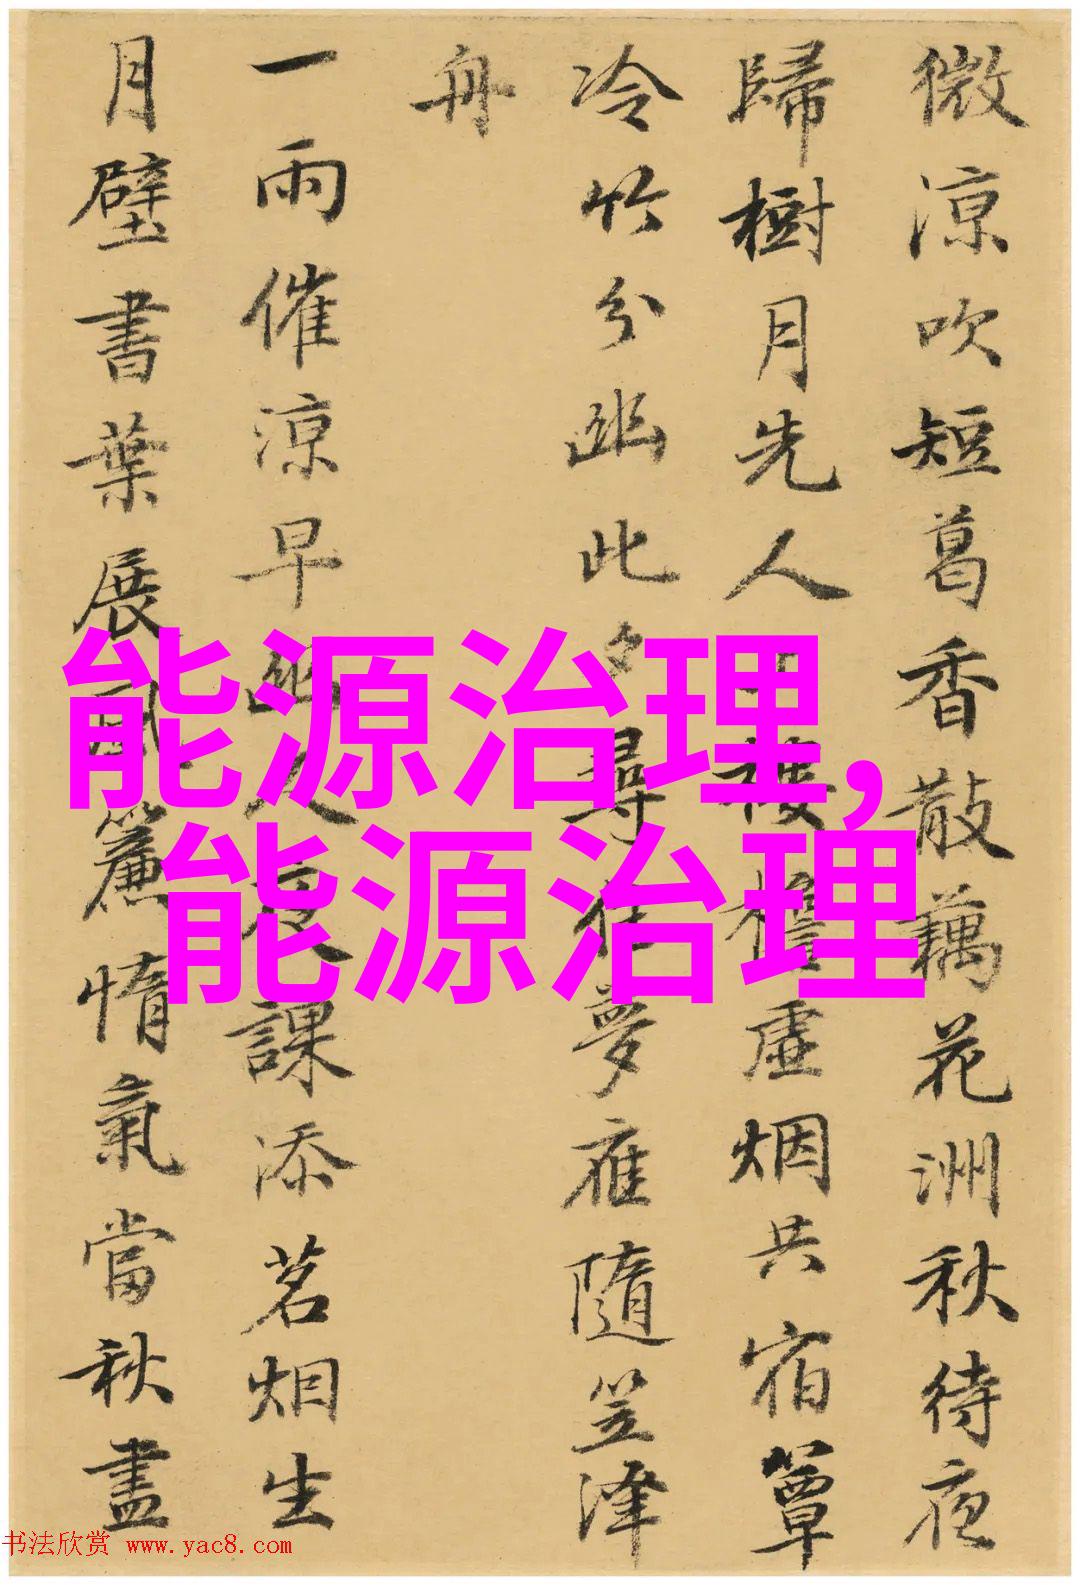 微涼吹短葛香散藕花洲秋待夜
歸樹月先人上樓檐虛烟共宿簟
冷竹分幽此夕尋佳夢應隨笠澤
舟
一雨催涼早幽人夜課添茗烟生
月壁書葉展風簾惰氣當秋盡
能源治理,
能源治理
书法欣赏 www.yac8.com